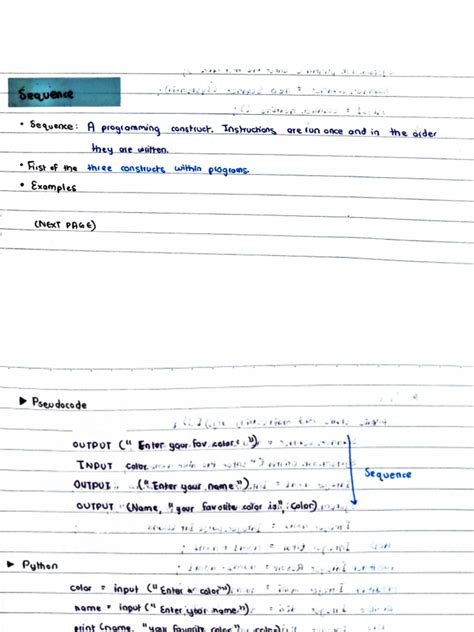 Sequence
• Sequence: A programming construct. Instructions are run once and in the order
they are written.
• First of the three constructs within programs.
• Examples
(NEXT PAGE)
▶ Pseudocode
OUTPUT (" Enter your fav color: ")
INPUT color
OUTPUT ("Enter your name")
OUTPUT (Name, "your favorite color is", color)
Sequence
▶ Python
color = input ("Enter a color")
name = input ("Enter your name")
print (name, "your favorite color"